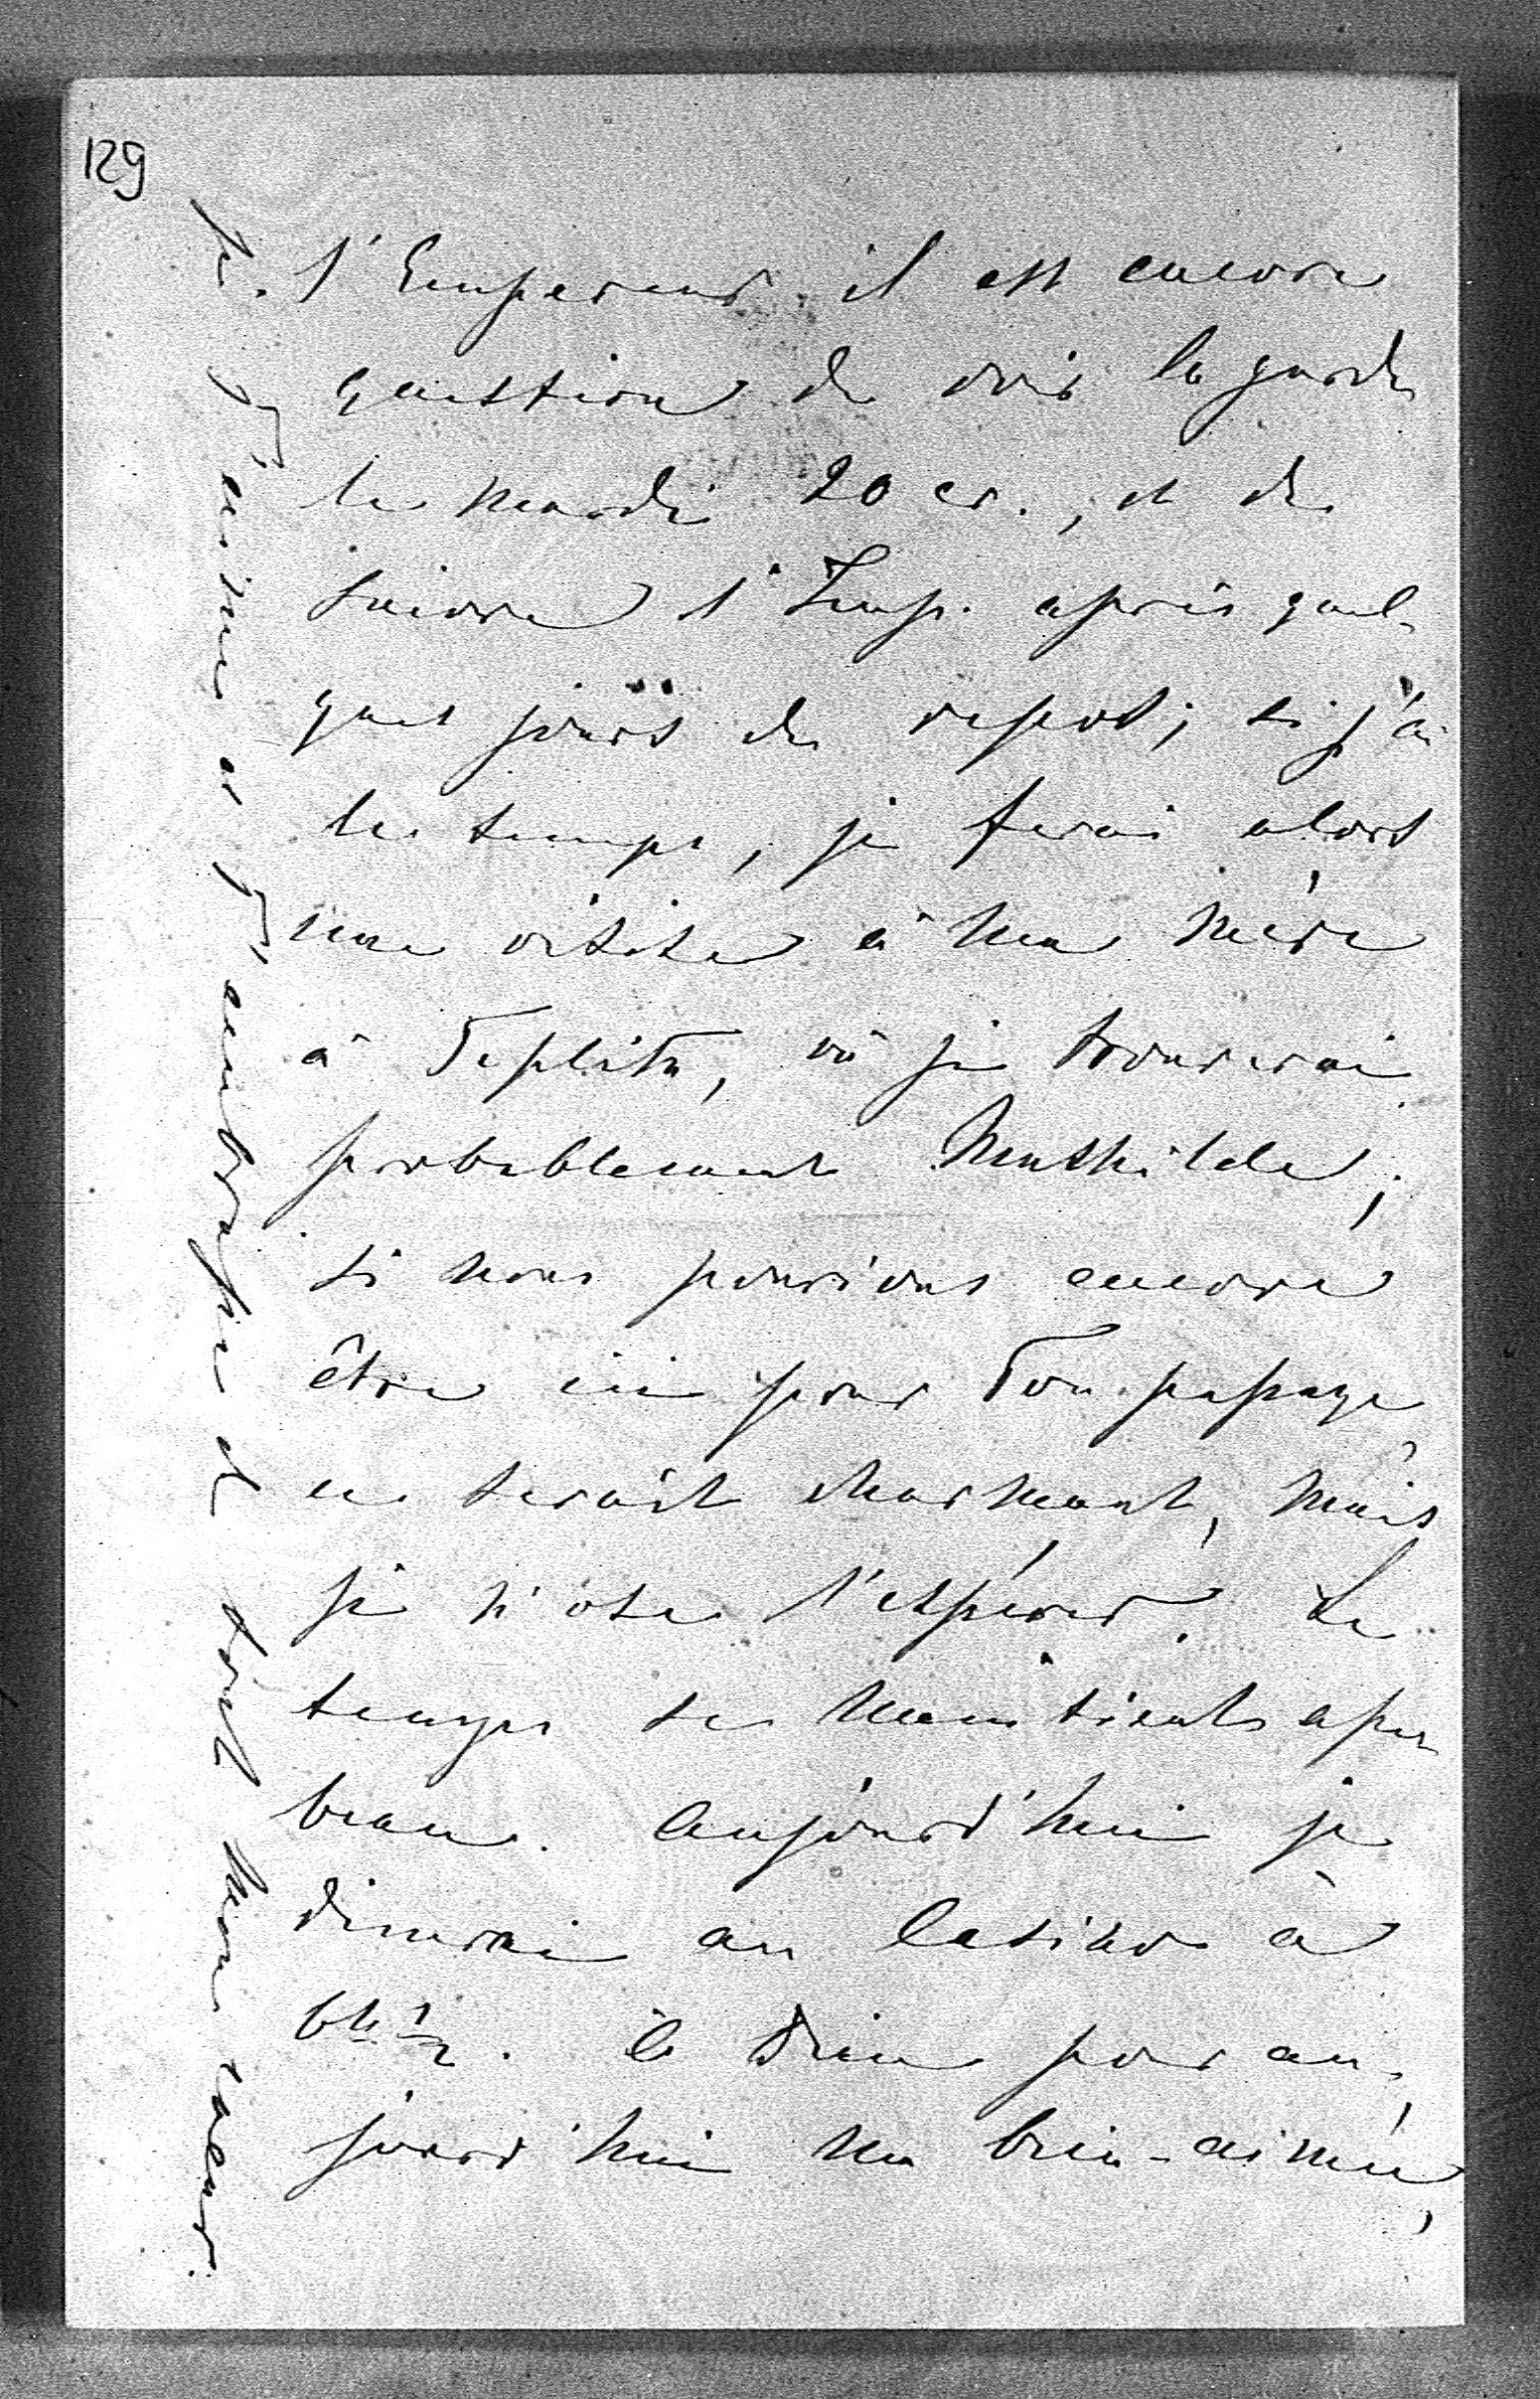 129
l'Empereur. il est encore
question de voir la garde
le mardi 20 cr., et de
suivre l'Emp. après quel-
ques jours de repos; si j'ai
le temps, je ferai alors
une visite à ma mère
à Teplitz, où je trouverai
probablement Mathilde;
si nous pouvions encore
être ici pour Ton passage,
ce serait charmant, mais
je n'ose l'espérer. Le
temps se maintient assez
beau. Aujourd'hui je
dinerai au Casino à
6h ½. à Dieu pour au-
jourd'hui ma bien-aimée,
je T'aime et T'embrasse de tout mon coeur.